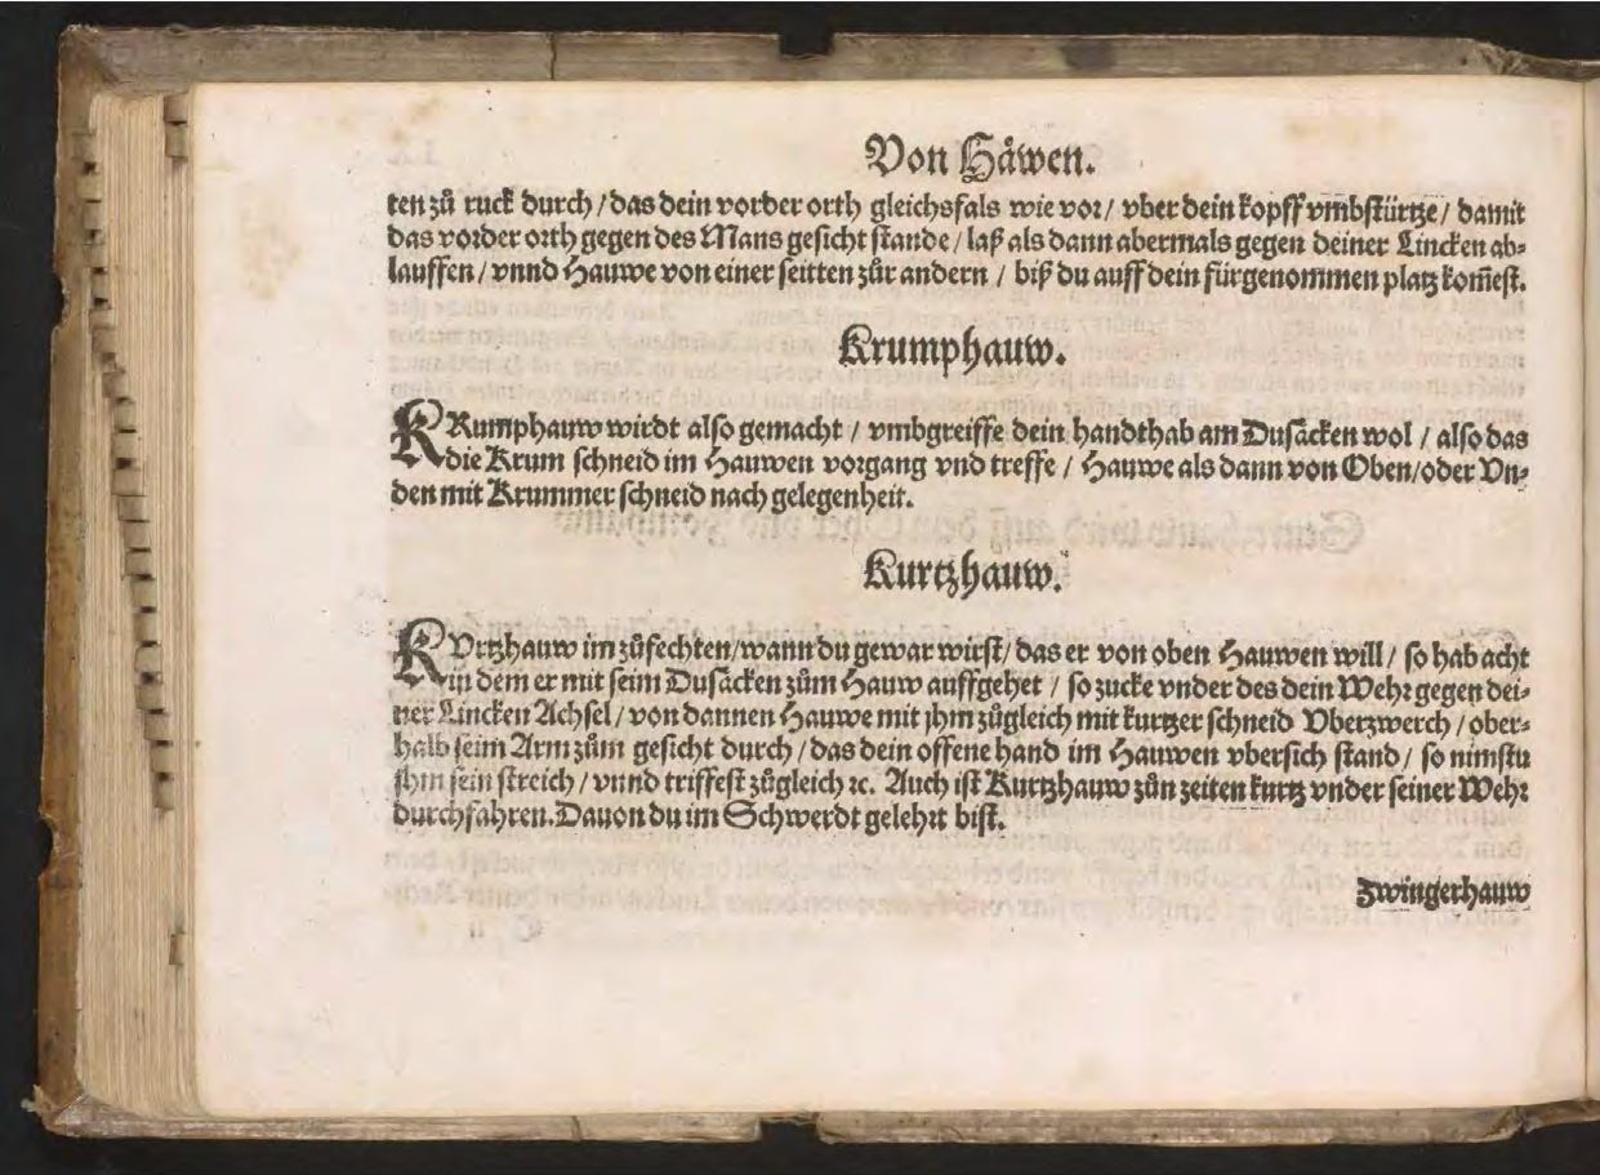 Von Håwen.
ten zů ruck durch / das dein vorder orth gleichsfals wie vor / vber dein kopff vmbstürtze / damit
das vorder orth gegen des Mans gesicht stande / laß als dann abermals gegen deiner Lincken ab⸗
lauffen / vnnd Hauwe von einer seitten zůr andern / biß du auff dein fürgenommen platz kom̄est.
Krumphauw.
KRumphauw wirdt also gemacht / vmbgreiffe dein handthab am Dusacken wol / also das
die Krum schneid im Hauwen vorgang vnd treffe / Hauwe als dann von Oben / oder Vn⸗
den mit Krummer schneid nach gelegenheit.
Kurtzhauw.
KVrtzhauw im zůfechten / wann du gewar wirst / das er von oben Hauwen will / so hab acht
in dem er mit seim Dusacken zům Hauw auffgehet / so zucke vnder des dein Wehr gegen dei⸗
ner Lincken Achsel / von dannen Hauwe mit jhm zůgleich mit kurtzer schneid Vberzwerch / ober⸗
halb seim Arm zům gesicht durch / das dein offene hand im Hauwen vbersich stand / so nimstu
jhm sein streich / vnnd triffest zůgleich ꝛc. Auch ist Kurtzhauw zůn zeiten kurtz vnder seiner Wehr
durchfahren. Dauon du im Schwerdt gelehrt bist.
Zwingerhauw